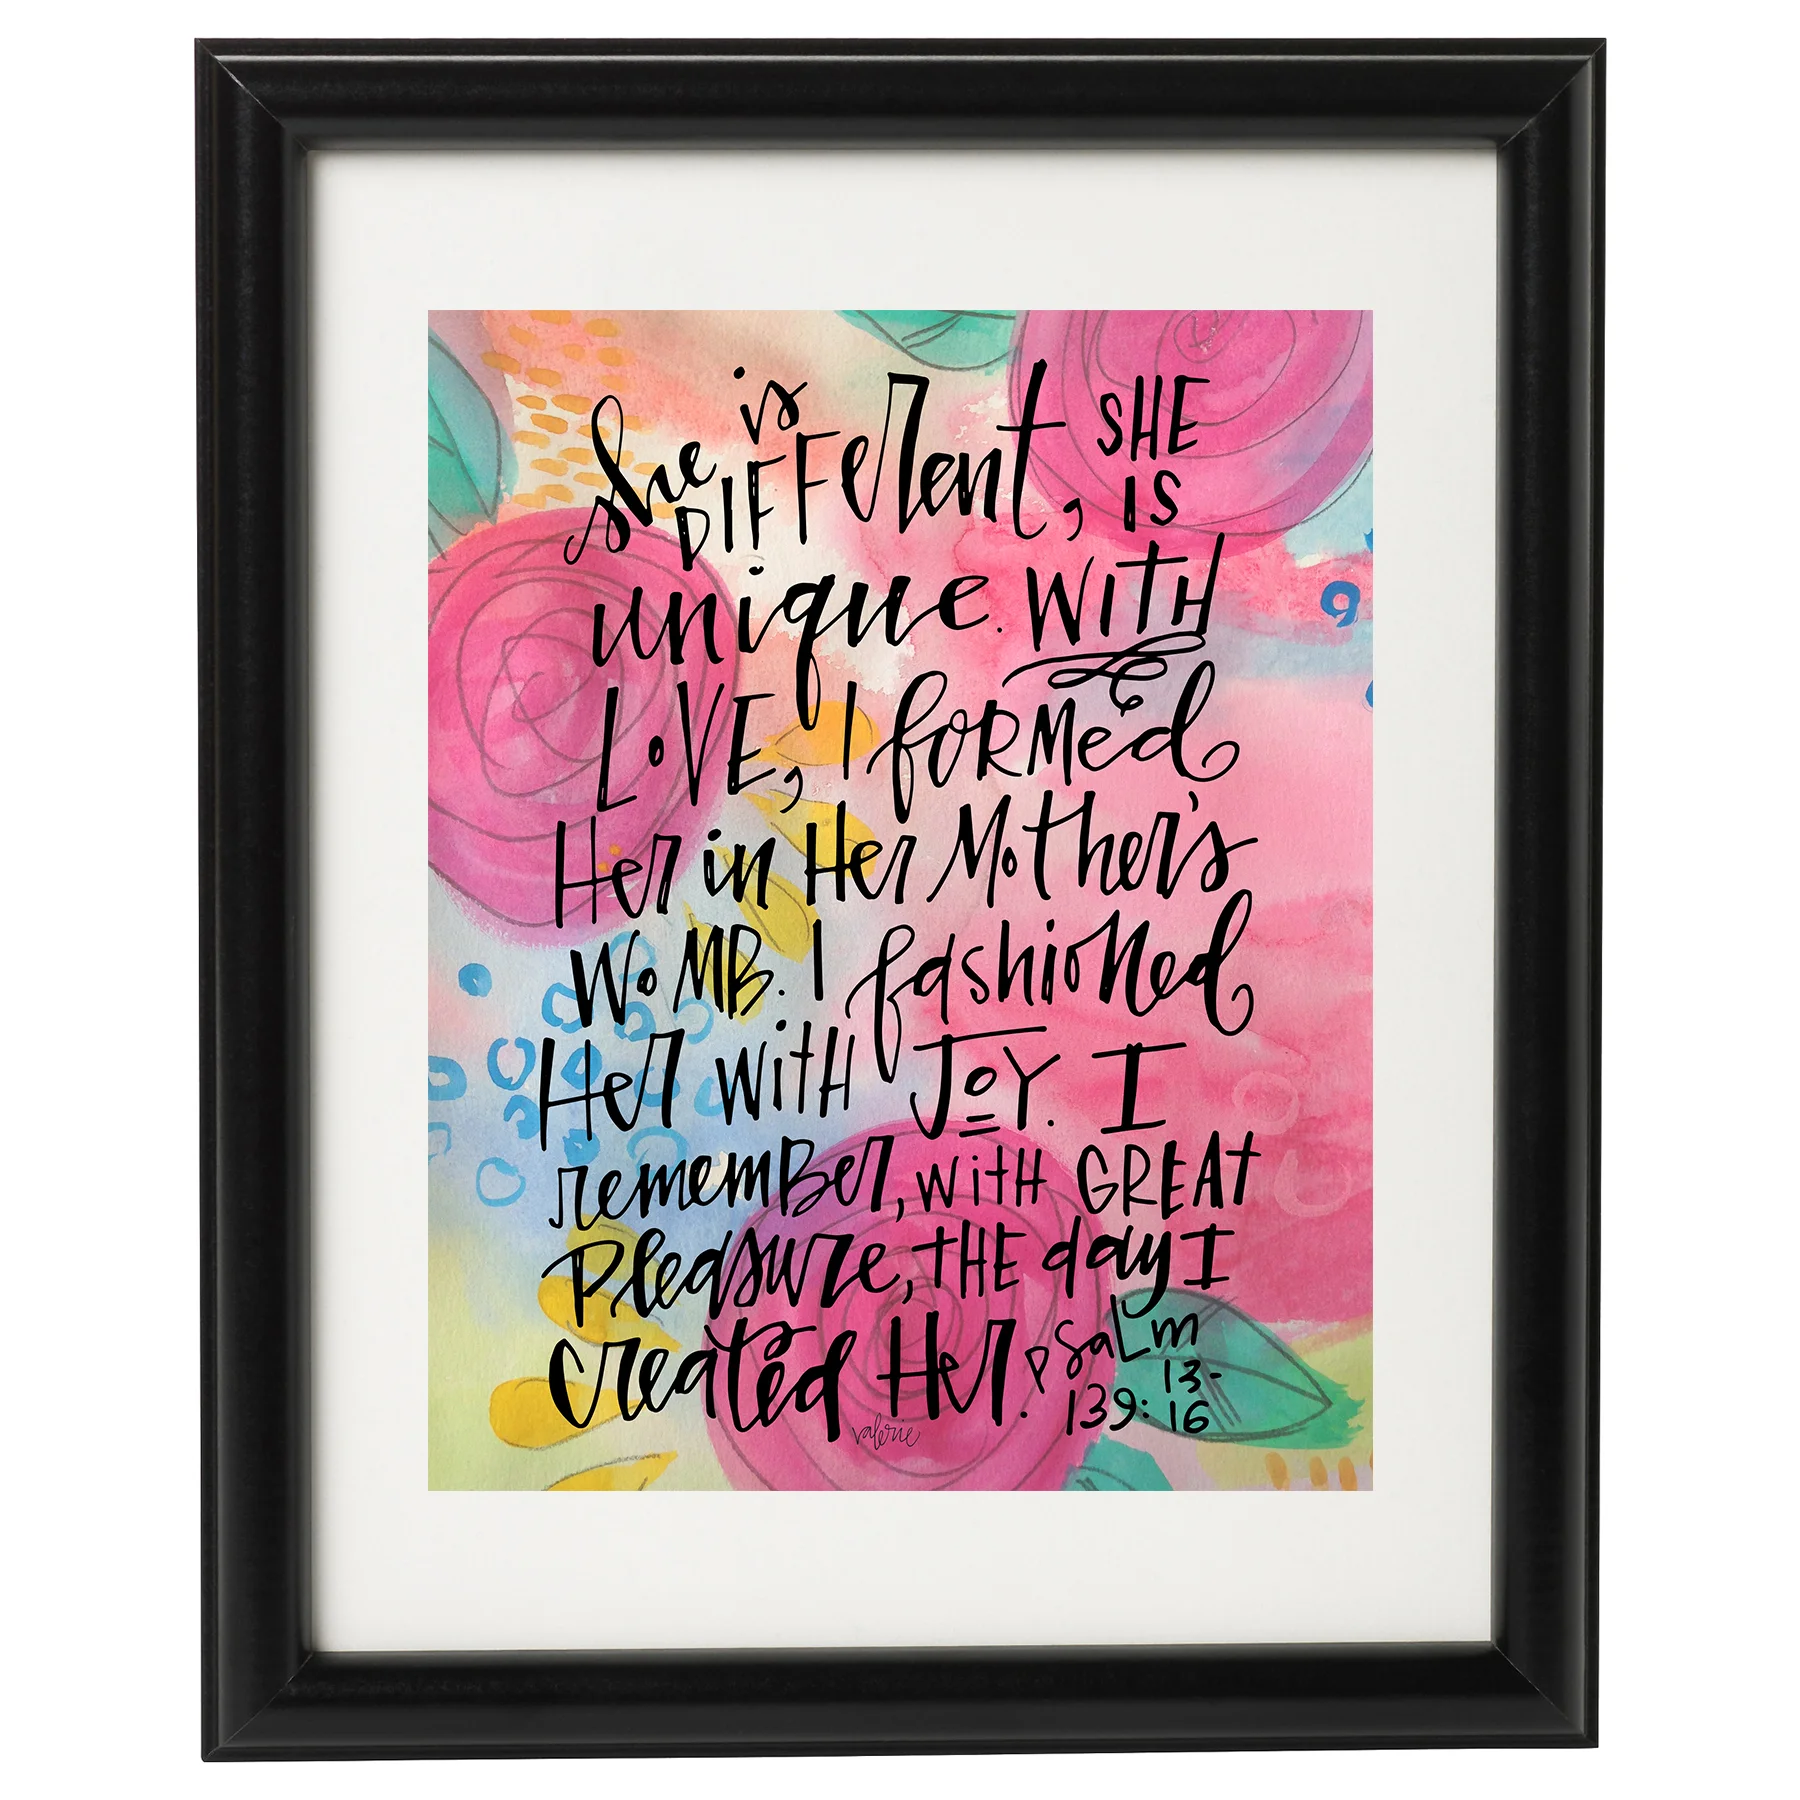 she is DIFFerent, SHE IS
unique. WITH
LOVE, I formed
Her in Her Mother's
WOMB. I fashioned
Her with JOY. I
remember, with GREAT
Pleasure, THE day I
created Her. Psalm 139:13-16
valerie